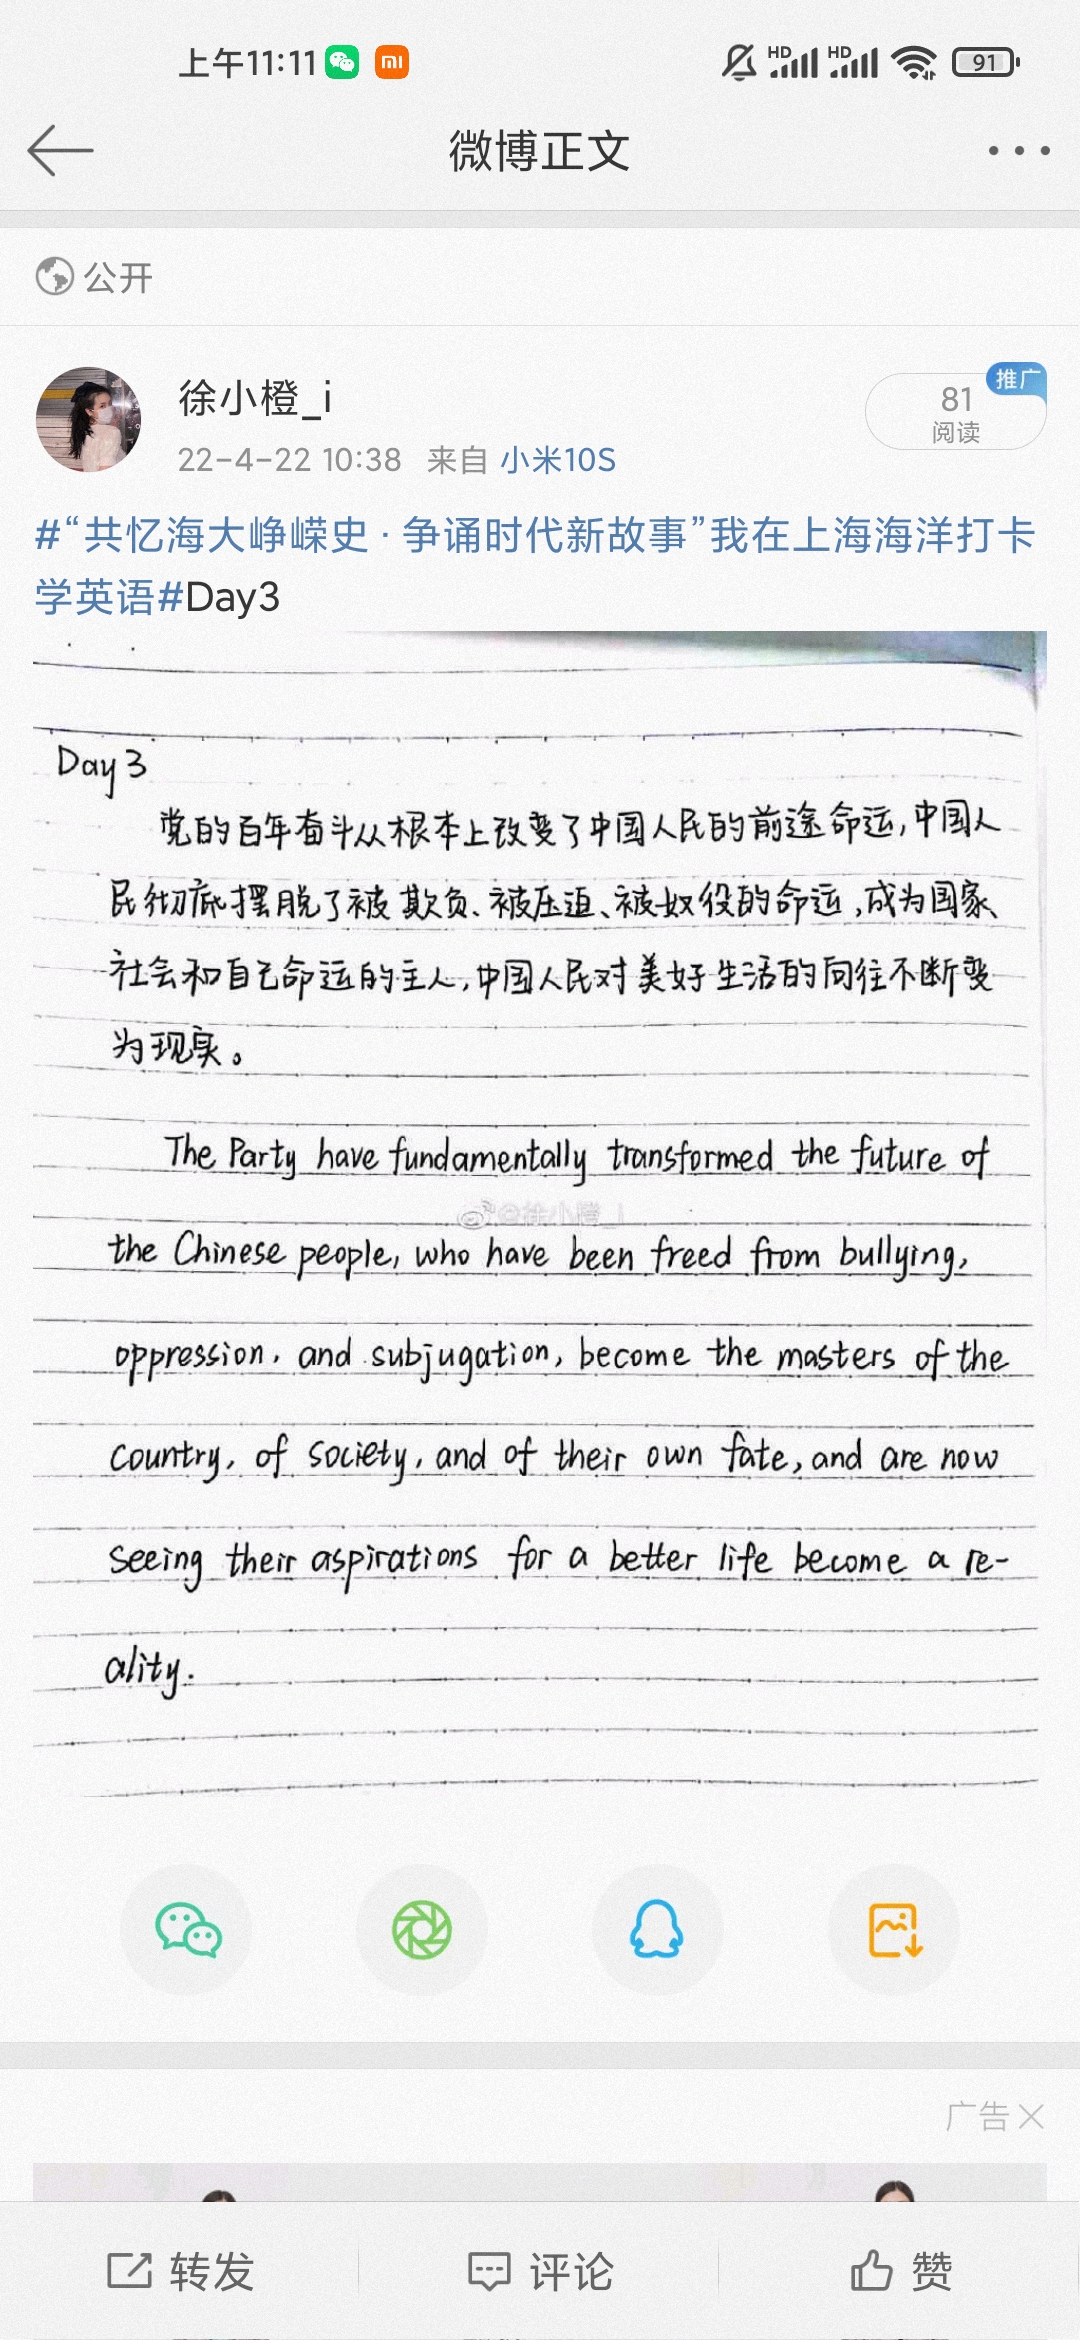 上午11:11
HD HD 91
微博正文
公开
徐小橙_i
81
推广
阅读
22-4-22 10:38 来自 小米10S
#“共忆海大峥嵘史·争诵时代新故事”我在上海海洋打卡
学英语#Day3
Day 3
党的百年奋斗从根本上改变了中国人民的前途命运,中国人
民彻底摆脱了被欺负、被压迫、被奴役的命运,成为国家、
社会和自己命运的主人,中国人民对美好生活的向往不断变
为现实。
The Party have fundamentally transformed the future of
@徐小橙_i
the Chinese people, who have been freed from bullying,
oppression, and subjugation, become the masters of the
country, of society, and of their own fate, and are now
seeing their aspirations for a better life become a re-
ality.
广告
转发 评论 赞